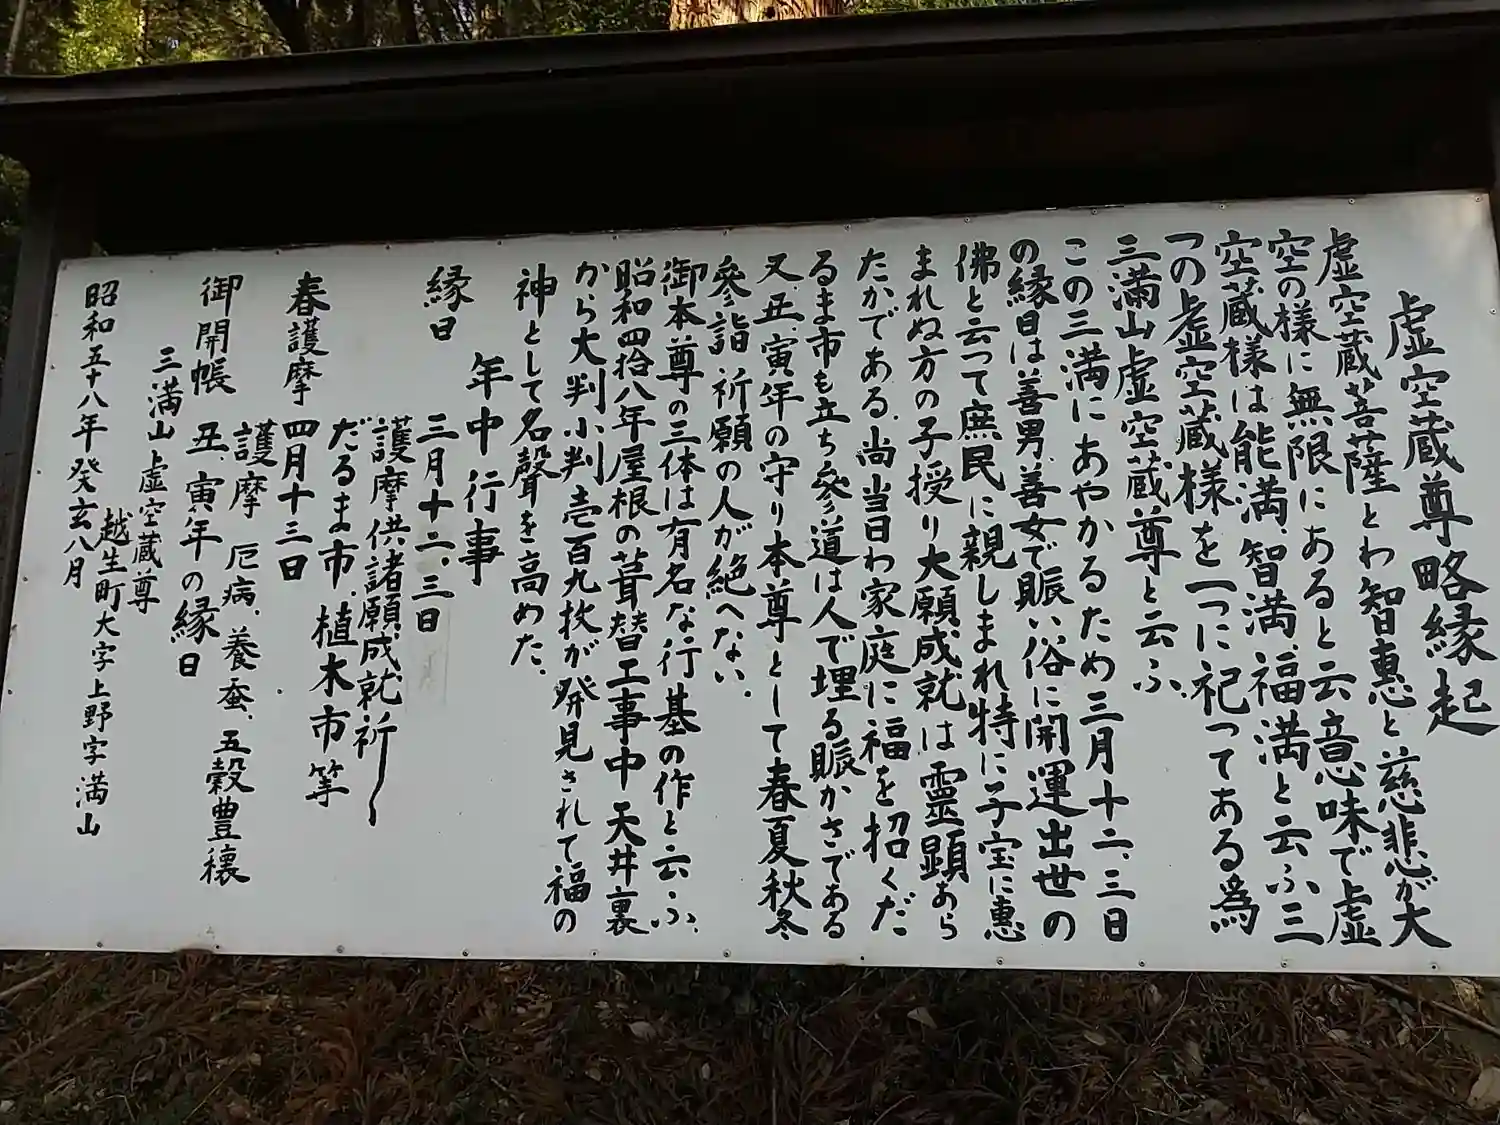 虚空蔵尊略縁起
虚空蔵菩薩とわ智恵と慈悲が大
空の様に無限にあると云意味で虚
空蔵様は能満、智満、福満と云ふ三
つの虚空蔵様を一つに祀つてある為
三満山虚空蔵尊と云ふ、
この三満にあやかるため三月十二、三日
の縁日は善男、善女で賑い俗に開運出世の
佛と云つて庶民に親しまれ特に子宝に惠
まれぬ方の子授り大願成就は靈顕あら
たかである、尚当日わ家庭に福を招くだ
るま市も立ち參道は人で埋る賑かさである
又、丑、寅年の守り本尊として春夏秋冬
參詣祈願の人が絶へない、
御本尊の三体は有名な行基の作と云ふ、
昭和四拾八年屋根の葺替工事中天井裏
から大判小判壱百九枚が発見されて福の
神として名聲を高めた、
年中行事
縁日 三月十二、三日
護摩供諸願成就祈〜
だるま市、植木市等
春護摩 四月十三日
護摩 厄病、養蚕、五穀豊穣
御開帳 丑、寅年の縁日
三満山虚空蔵尊
越生町大字上野字満山
昭和五十八年癸亥八月